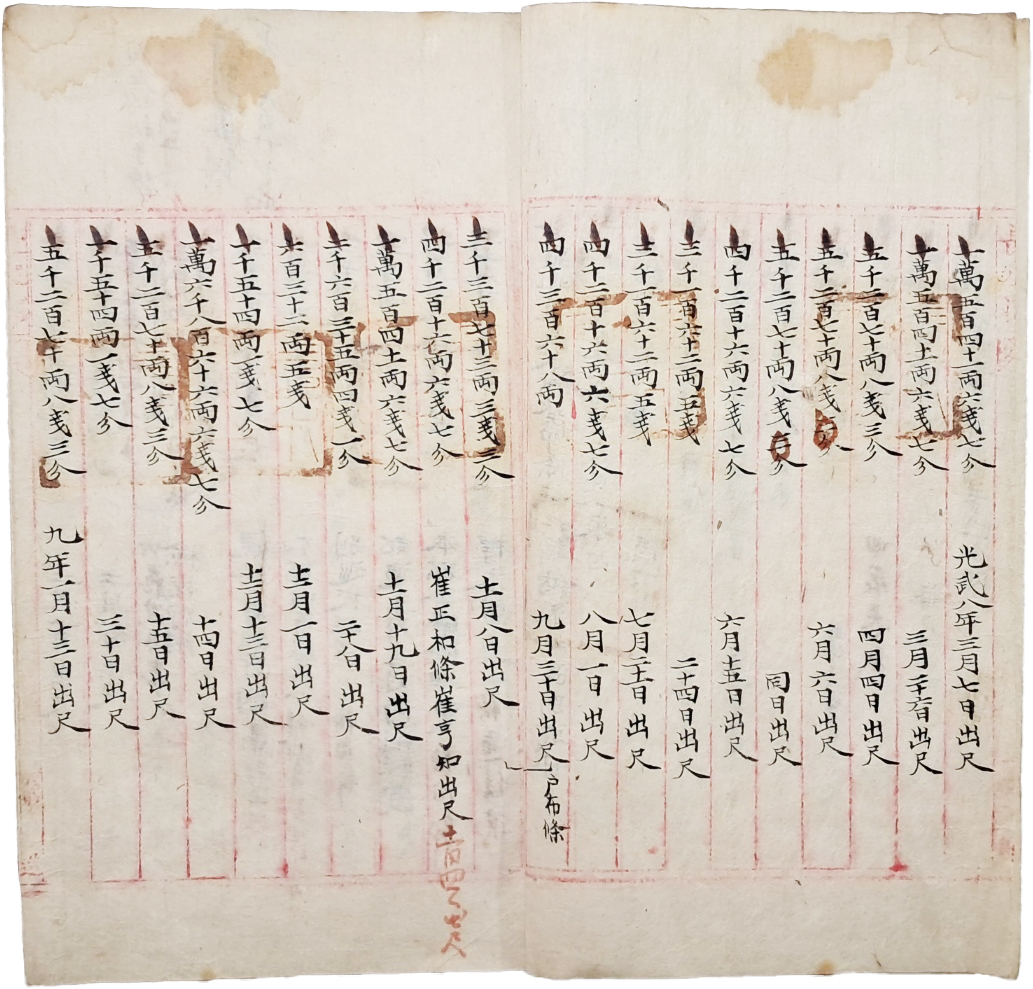 一萬五百四十一両六戔七分 光武八年三月七日出尺
一萬五百四十一両六戔七分 三月二十六日出尺
五千二百七十両八戔三分 四月四日出尺
五千二百七十両八戔分 六月六日出尺
五千二百七十両八戔分 同日出尺
四千二百十六両六戔七分 六月十五日出尺
三千一百六十二両五戔 二十四日出尺
三千一百六十二両五戔 七月二十一日出尺
四千二百十六両六戔七分 八月一日出尺
四千三百六十八両 九月三十日出尺 戶布條
三千三百七十三両三戔三分 十一月八日出尺
四千二百十六両六戔七分 崔正和條崔亨和出尺 出尺
一萬五百四十一両六戔七分 十一月十九日出尺
二千六百三十五両四戔一分 二十八日出尺
六百三十二両五戔 十二月一日出尺
一千五十四両一戔七分 十二月十三日出尺
一萬六千八百六十六両六戔七分 十四日出尺
五千二百七十両八戔三分 十五日出尺
一千五十四両一戔七分 三十日出尺
五千二百七十両八戔三分 九年一月十三日出尺